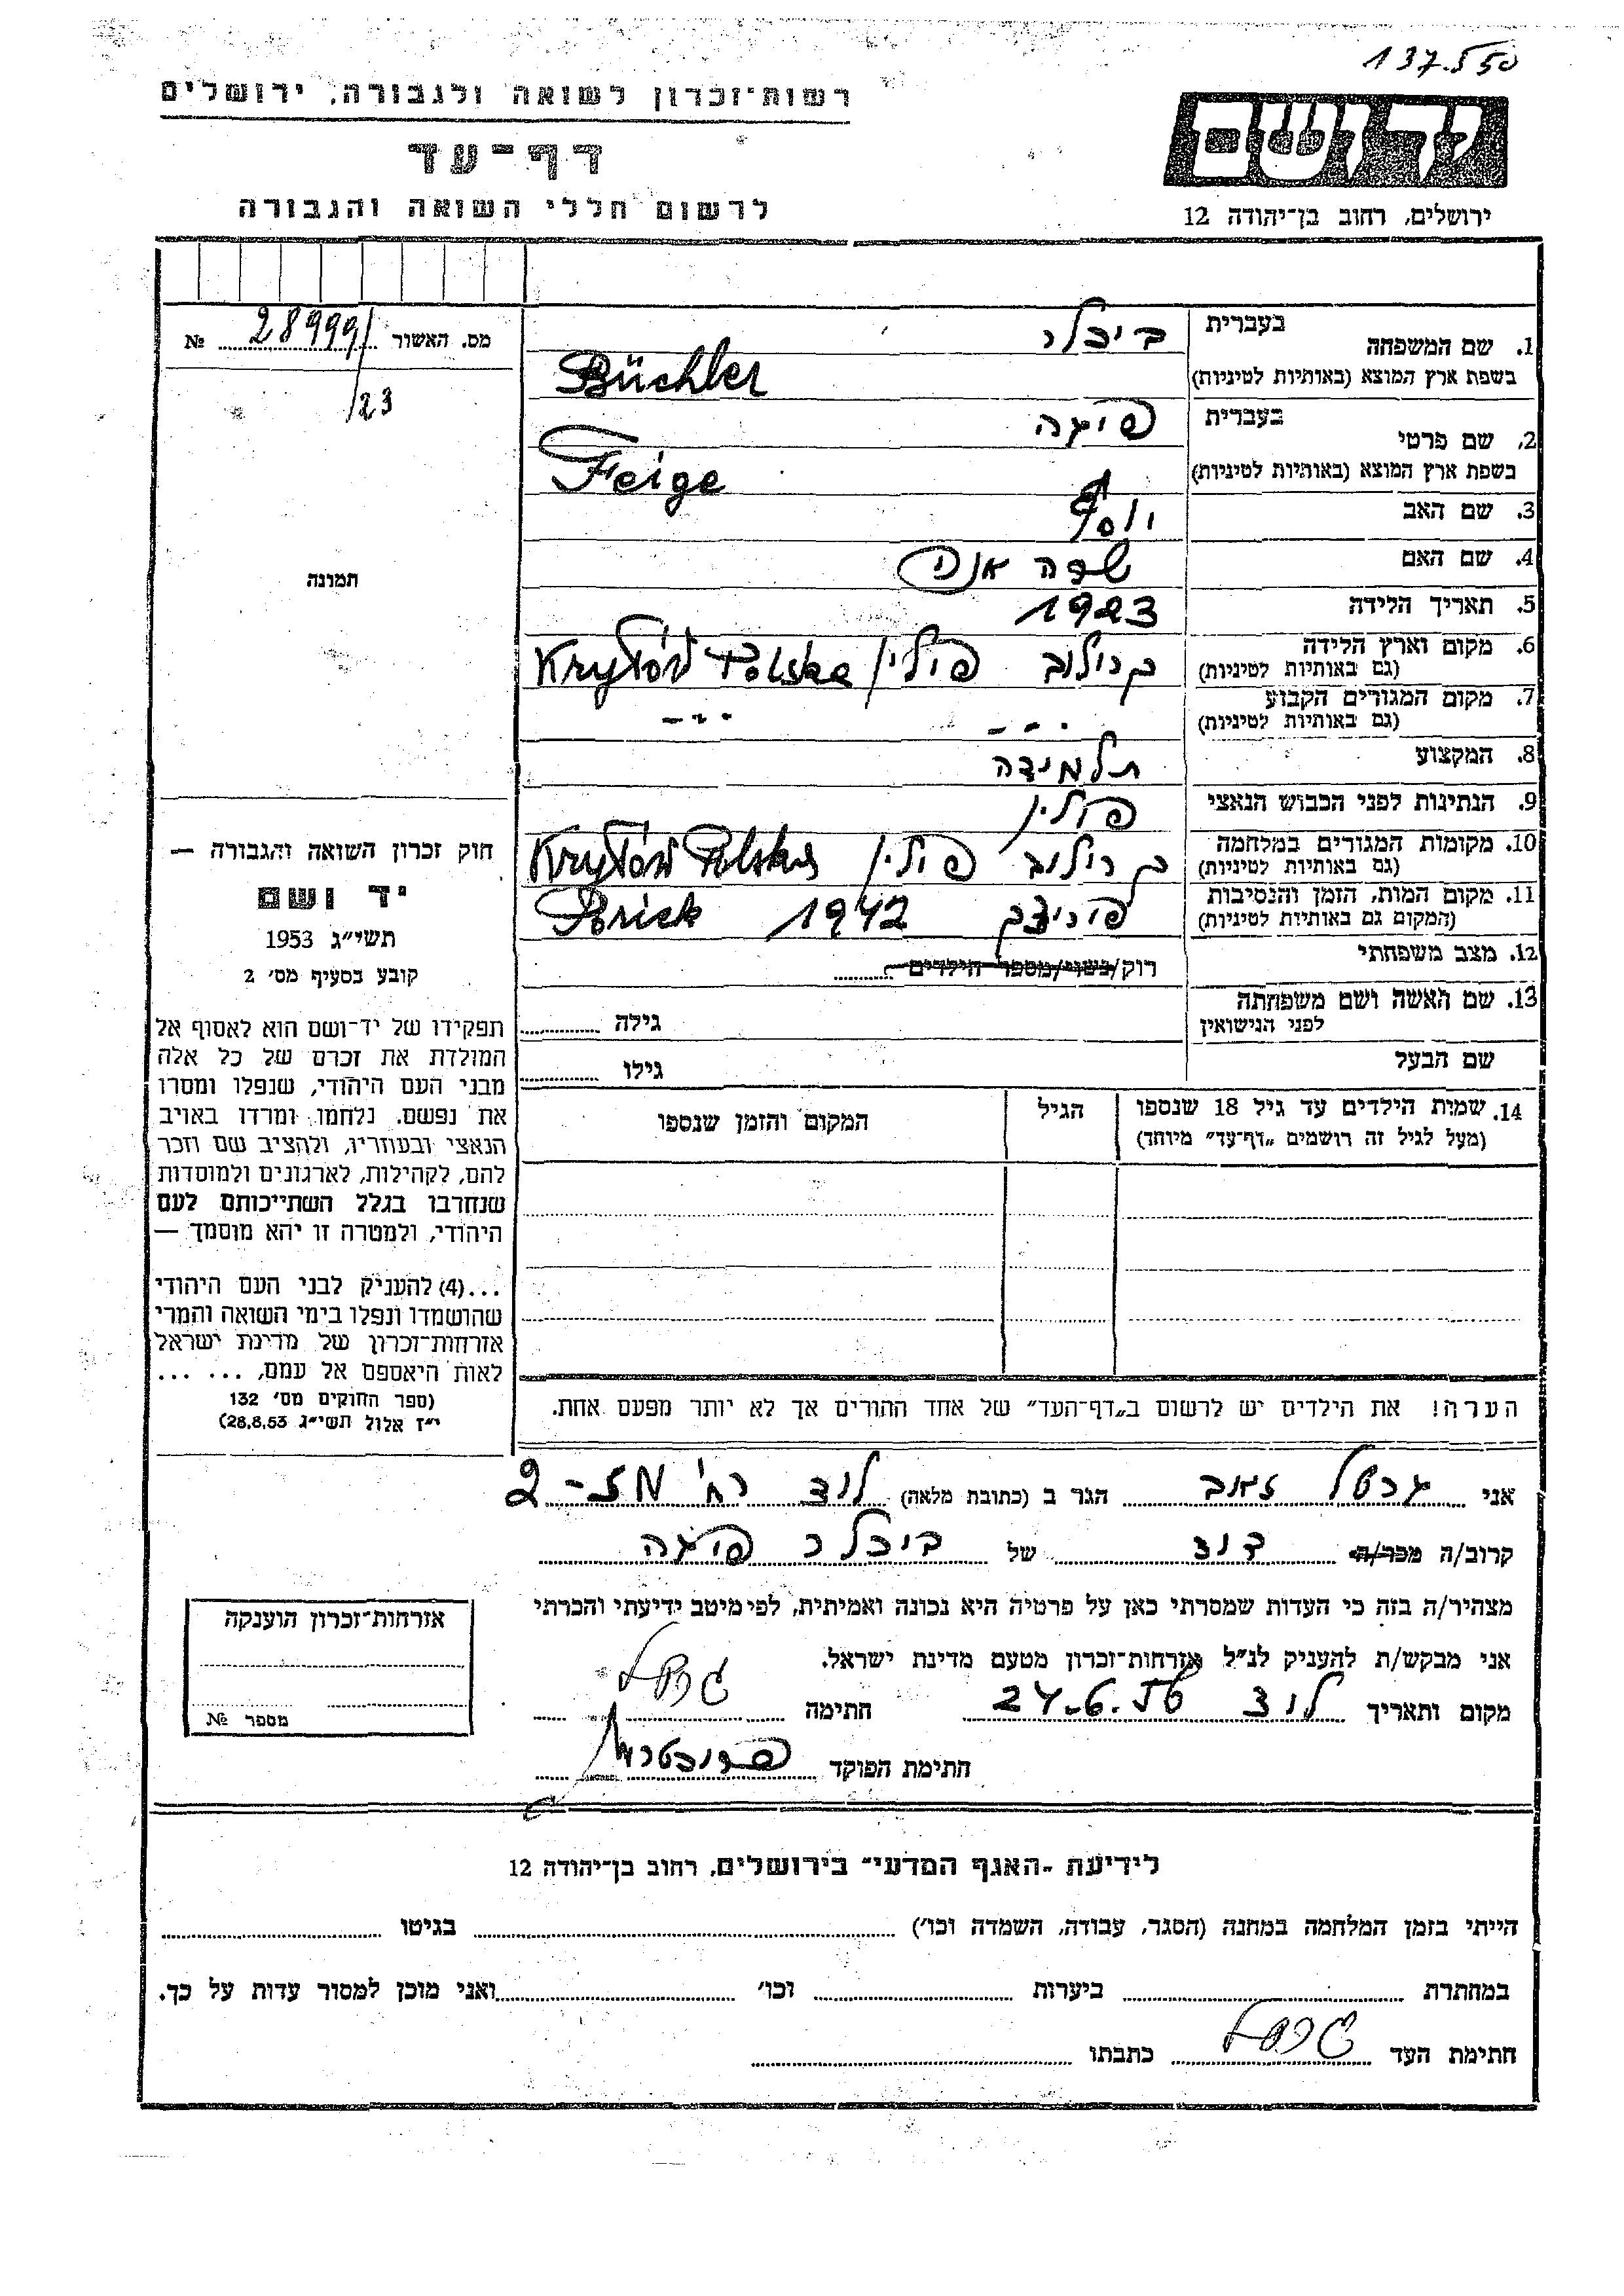 137.550
רשות־זכרון לשואה ולגבורה, ירושלים
דף־עד
לרשום חללי השואה והגבורה
ירושלים, רחוב בן־יהודה 12
מס. האשור 28999/ №
/23
תמונה
1. שם המשפחה בעברית ביכלר
בשפת ארץ המוצא (באותיות לטיניות) Büchler
2. שם פרטי בעברית פיגה
בשפת ארץ המוצא (באותיות לטיניות) Feige
3. שם האב יוסף
4. שם האם שרה אנה
5. תאריך הלידה 1923
6. מקום וארץ הלידה
(גם באותיות לטיניות) קרילוב פולין / Kryłów Polska
7. מקום המגורים הקבוע
(גם באותיות לטיניות) -"- -"-
8. המקצוע תלמידה
9. הנתינות לפני הכבוש הנאצי פולין
10. מקומות המגורים במלחמה
(גם באותיות לטיניות) קרילוב פולין Kryłów Polska
11. מקום המות, הזמן והנסיבות
(המקום גם באותיות לטיניות) 1942
12. מצב משפחתי רוק/נשוי/מספר הילדים
13. שם האשה ושם משפחתה
לפני הנישואין גילה
שם הבעל גילו
14. שמות הילדים עד גיל 18 שנספו
(מעל לגיל זה רושמים „דף־עד” מיוחד)
הגיל
המקום והזמן שנספו
חוק זכרון השואה והגבורה —
יד ושם
תשי״ג 1953
קובע בסעיף מס׳ 2
תפקידו של יד־ושם הוא לאסוף אל
המולדת את זכרם של כל אלה
מבני העם היהודי, שנפלו ומסרו
את נפשם. נלחמו ומרדו באויב
הנאצי ובעוזריו, ולהציב שם וזכר
להם, לקהילות, לארגונים ולמוסדות
שנחרבו בגלל השתייכותם לעם
היהודי, ולמטרה זו יהא מוסמך —
...(4) להעניק לבני העם היהודי
שהושמדו ונפלו בימי השואה והמרי
אזרחות־זכרון של מדינת ישראל
לאות היאספם אל עמם, ... ...
(ספר החוקים מס׳ 132
י״ז אלול תשי״ג 28.8.53)
הערה! את הילדים יש לרשום ב„דף־העד” של אחד ההורים אך לא יותר מפעם אחת.
אני גרטל זאב הגר ב (כתובת מלאה) לוד רח׳
קרוב/ה מכר/ה דוד של ביכלר פיגה
מצהיר/ה בזה כי העדות שמסרתי כאן על פרטיה היא נכונה ואמיתית, לפי מיטב ידיעתי והכרתי
אני מבקש/ת להעניק לנ״ל אזרחות־זכרון מטעם מדינת ישראל.
מקום ותאריך לוד 24.6.56 חתימה
חתימת הפוקד
אזרחות־זכרון הוענקה
מספר №
לידיעת ״האגף המדעי״ בירושלים, רחוב בן־יהודה 12
הייתי בזמן המלחמה במחנה (הסגר, עבודה, השמדה וכו׳) בגיטו
במחתרת ביערות וכו׳ ואני מוכן למסור עדות על כך.
חתימת העד כתבתו